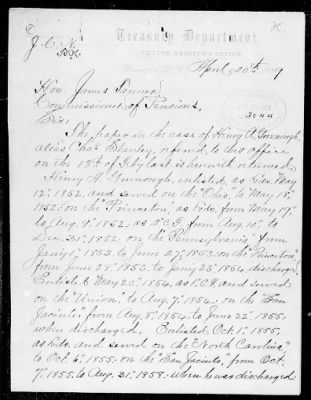 J. C. N.
Treasury Department,
SECOND AUDITOR'S OFFICE,
April 20th
Hon. James Tanner,
Commissioner of Pensions,
Sir:
3044
The paper in the case of Henry A.
alias Chas. Stanley, referred to this office
on the 19th of Feby last is herewith returned.
Henry A. enlisted, as Lds, May
12th, 1852, and served on the "Ohio," to May 18,
1852 on the "Princeton," as Lds, from May 19,
to Aug. 9, 1852, as 2 C F from Aug. 10, to
Dec. 31, 1852, on the "Pennsylvania" from
Jany 1, 1853, to June 27, 1853, on the "Princeton,"
from June 28, 1853, to Jany 23, 1854, discharged.
Enlisted May 20, 1854, as and served
on the "Union," to Aug. 7, 1854, on the "San
Jacinto," from Aug. 8, 1854, to June 22, 1855,
when discharged. Enlisted, Oct. 1, 1855,
as Lds, and served on the "North Carolina,"
to Oct. 6, 1855, on the "San Jacinto," from Oct.
7, 1855, to Aug. 31, 1858, when he was discharged